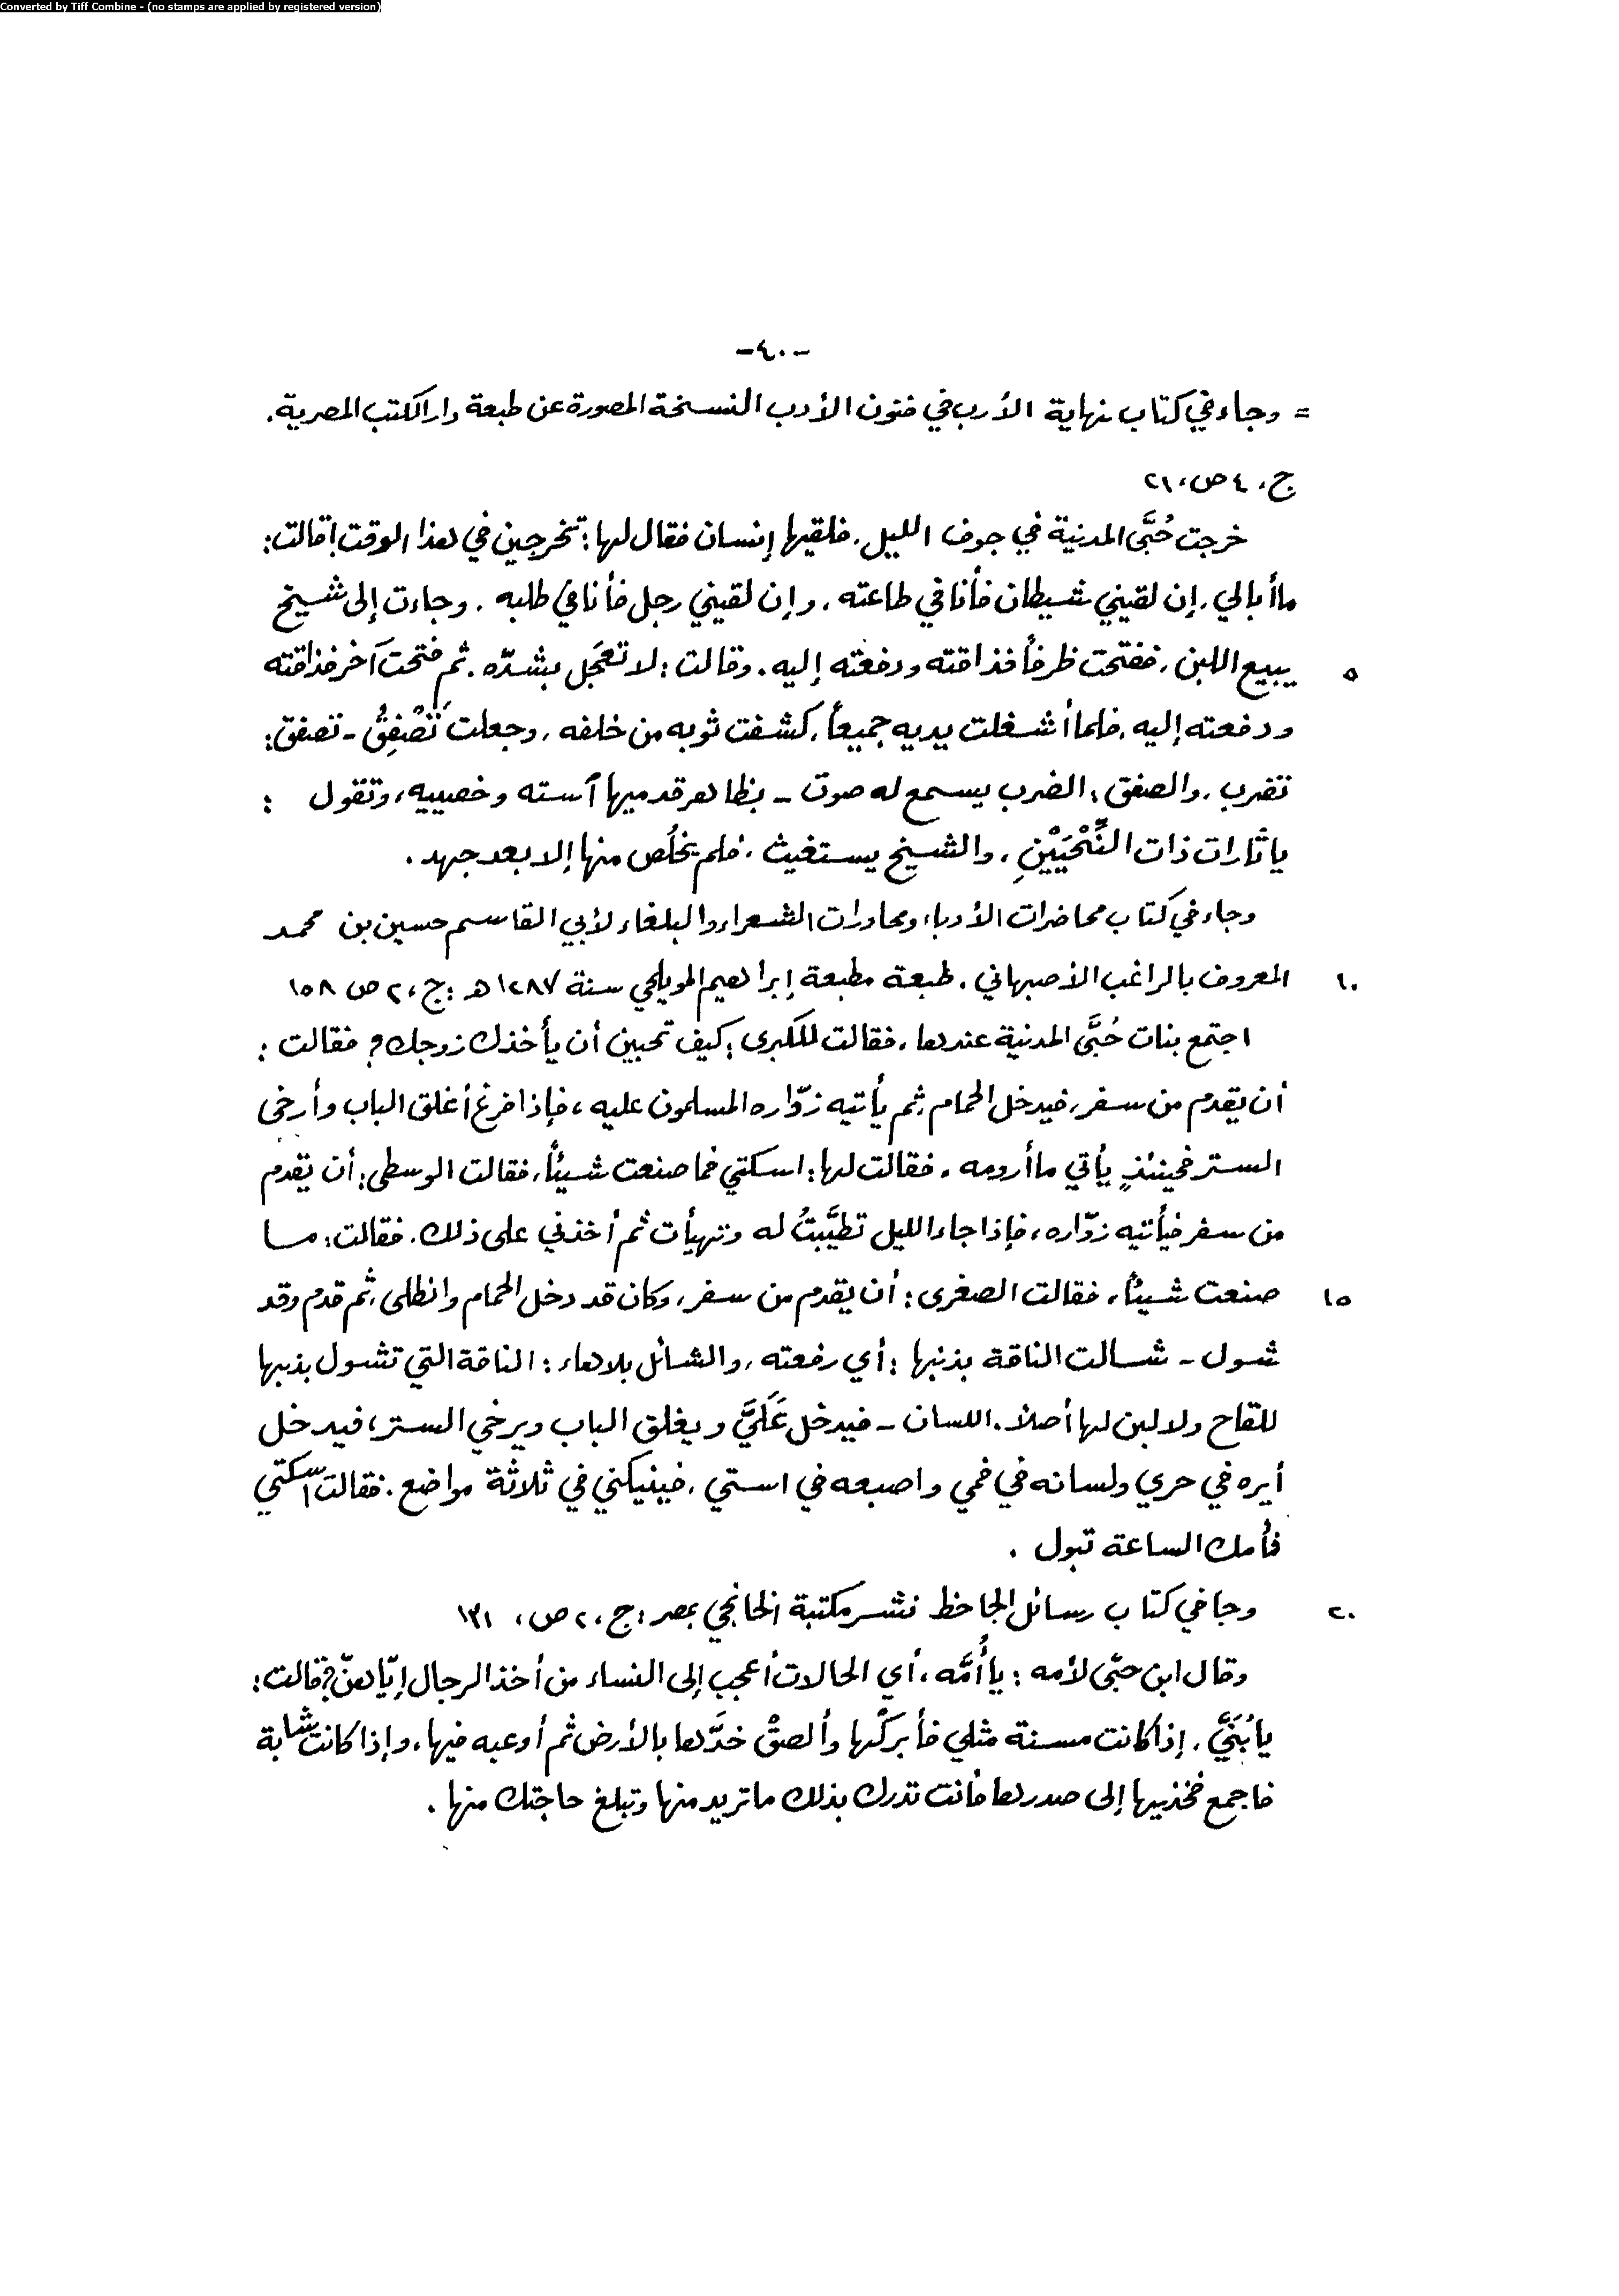 Converted by Tiff Combine - (no stamps are applied by registered version)
-٤٠-
= وجاء في كتاب نهاية الأرب في فنون الأدب النسخة المصورة عن طبعة دار الكتب المصرية.
ج، ٤ ص، ٢١
خرجت حُبَّى المدنية في جوف الليل، فلقيها إنسان فقال لها: تخرجين في هذا الوقت! قالت:
ما أبالي، إن لقيني شيطان فأنا في طاعته، وإن لقيني رجل فأنا في طلبه. وجاءت إلى شيخ
يبيع اللبن، ففتحت ظرفاً فذاقته ودفعته إليه، وقالت: لا تعجَل بشدّه. ثم فتحت آخر فذاقته ٥
ودفعته إليه، فلما أشغلت يديه جميعاً، كشفت ثوبه من خلفه، وجعلت تَصْفِقُ - تصفق:
تضرب، والصفق: الضرب يسمع له صوت - بظاهر قدميها آسته وخصييه، وتقول :
يا ثارات ذات النِّحْيَيْنِ، والشيخ يستغيث، فلم يخلُص منها إلا بعد جهد.
وجاء في كتاب محاضرات الأدباء ومحاورات الشعراء والبلغاء لأبي القاسم حسين بن محمد
المعروف بالراغب الأصبهاني، طبعة مطبعة إبراهيم المويلحي سنة ١٢٨٧ هـ: ج، ٢ ص ١٥٨ ١٠
اجتمع بنات حُبَّى المدنية عندها، فقالت للكبرى: كيف تحبين أن يأخذك زوجك؟ فقالت:
أن يقدم من سفر، فيدخل الحمام، ثم يأتيه زوّاره المسلمون عليه، فإذا فرغ أغلق الباب وأرخى
الستر فحينئذٍ يأتي ما أرومه. فقالت لها: اسكتي فما صنعت شيئاً، فقالت الوسطى: أن يقدم
من سفر فيأتيه زوّاره، فإذا جاء الليل تطيَّبتُ له وتهيأت ثم أخذني على ذلك. فقالت: ما
صنعت شيئاً، فقالت الصغرى: أن يقدم من سفر، وكان قد دخل الحمام وانطلى، ثم قدم وقد ١٥
شول - شالت الناقة بذنبها: أي رفعته، والشائل بلا هاء: الناقة التي تشول بذنبها
للقاح ولا لبن لها أصلاً. اللسان - فيدخل عَلَيَّ ويغلق الباب ويرخي الستر، فيدخل
أيره في حري ولسانه في فمي واصبعه في استي، فينيكني في ثلاثة مواضع. فقالت اسكتي
فأمك الساعة تبول.
وجا في كتاب رسائل الجاحظ نشر مكتبة الخانجي بمصر: ج، ٢ ص، ١٣١ ٢٠
وقال ابن حبّى لأمه: يا أُمَّه، أي الحالات أعجب إلى النساء من أخذ الرجال إيّاهنّ؟ قالت:
يا بُنَيَّ، إذا كانت مسنة مثلي فأبركْها وألصقْ خدَّها بالأرض ثم أوعبه فيها، وإذا كانت شابة
فاجمع فخذيها إلى صدرها فأنت تدرك بذلك ما تريد منها وتبلغ حاجتك منها.